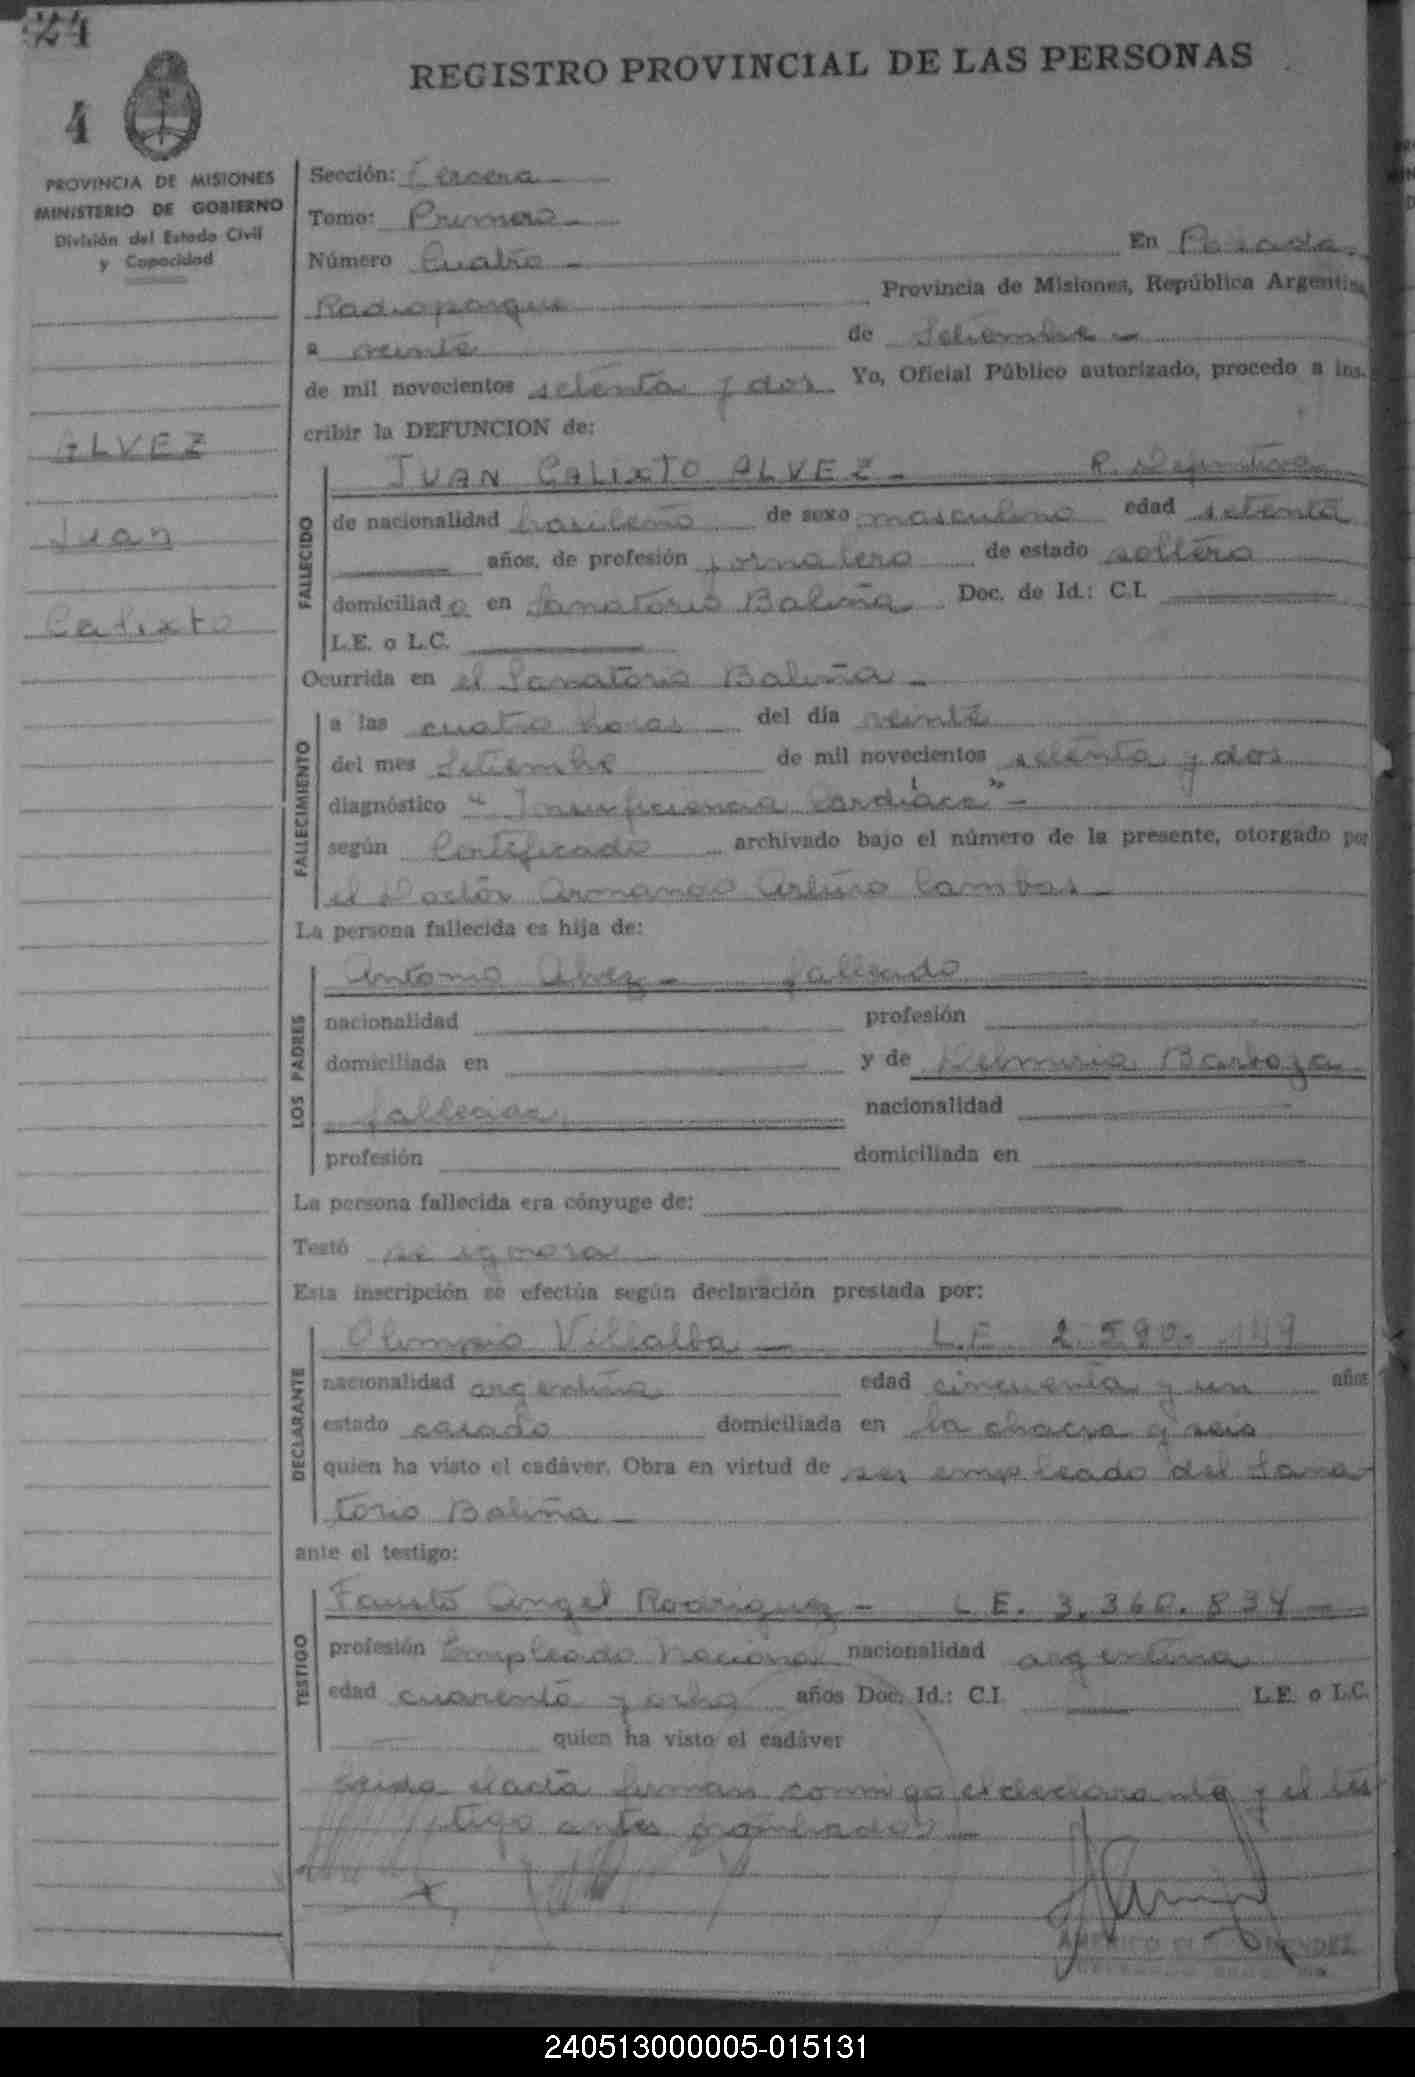 24
REGISTRO PROVINCIAL DE LAS PERSONAS
4
PROVINCIA DE MISIONES
MINISTERIO DE GOBIERNO
División del Estado Civil
y Capacidad
ALVEZ
Juan
Calixto
Sección: Tercera
Tomo: Primero
Número Cuatro - En Posadas
Radioparque Provincia de Misiones, República Argentina
a veinte de Setiembre
de mil novecientos setenta y dos Yo, Oficial Público autorizado, procedo a ins-
cribir la DEFUNCION de:
FALLECIDO
JUAN CALIXTO ALVEZ - R. Definitiva
de nacionalidad brasileño de sexo masculino edad setenta
años, de profesión jornalero de estado soltero
domiciliado en Sanatorio Baliña Doc. de Id.: C.I.
L.E. o L.C.
Ocurrida en el Sanatorio Baliña -
FALLECIMIENTO
a las cuatro horas del día veinte
del mes Setiembre de mil novecientos setenta y dos
diagnóstico "Insuficiencia Cardíaca" -
según Certificado archivado bajo el número de la presente, otorgado por
el Doctor Armando Arturo Cambas -
La persona fallecida es hija de:
LOS PADRES
Antonio Alvez - fallecido
nacionalidad profesión
domiciliada en y de Barboza
fallecida nacionalidad
profesión domiciliada en
La persona fallecida era cónyuge de:
Testó se ignora
Esta inscripción se efectúa según declaración prestada por:
DECLARANTE
Olimpio Villalba - L.E. 2.590.149
nacionalidad argentina edad cincuenta y un años
estado casado domiciliada en la chacra seis
quien ha visto el cadáver. Obra en virtud de ser empleado del Sana-
torio Baliña -
ante el testigo:
TESTIGO
Fausto Angel Rodriguez - L.E. 3.360.834 -
profesión Empleado Nacional nacionalidad argentina
edad cuarenta y ocho años Doc. Id.: C.I. L.E. o L.C.
quien ha visto el cadáver
Leida el acta firman conmigo el declarante y el tes
tigo antes nombrados -
AMERICO
240513000005-015131